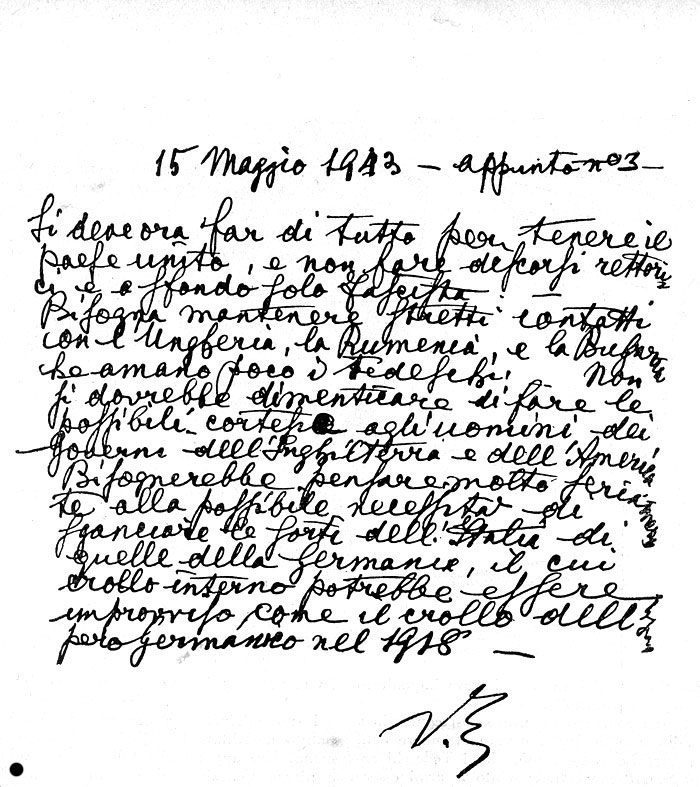 15 Maggio 1943 — appunto nº 3 —
Si deve ora far di tutto per tenere il
paese unito, e non fare discorsi rettori
ci e a sfondo solo fascista —
Bisogna mantenere stretti contatti
con l'Ungheria, la Rumenia, e la Bulgaria
che amano poco i tedeschi. Non
si dovrebbe dimenticare di fare le
possibili cortesie agli uomini dei
governi dell'Inghilterra e dell'America
Bisognerebbe pensare molto seria
te alla possibile necessità di
sganciare le sorti dell'Italia di
quelle della Germania, il cui
crollo interno potrebbe essere
improvviso come il crollo dell'Im
pero germanico nel 1918 —
V.E